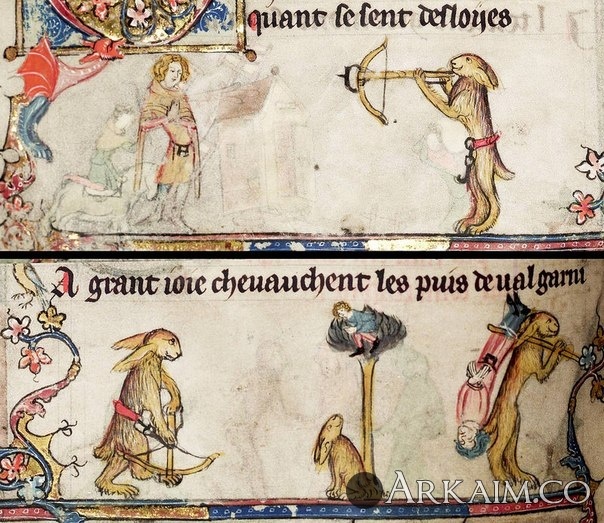 quant se sent desloyes
A grant ioie cheuauchent les puis de ual garni
ARKAIM.CO